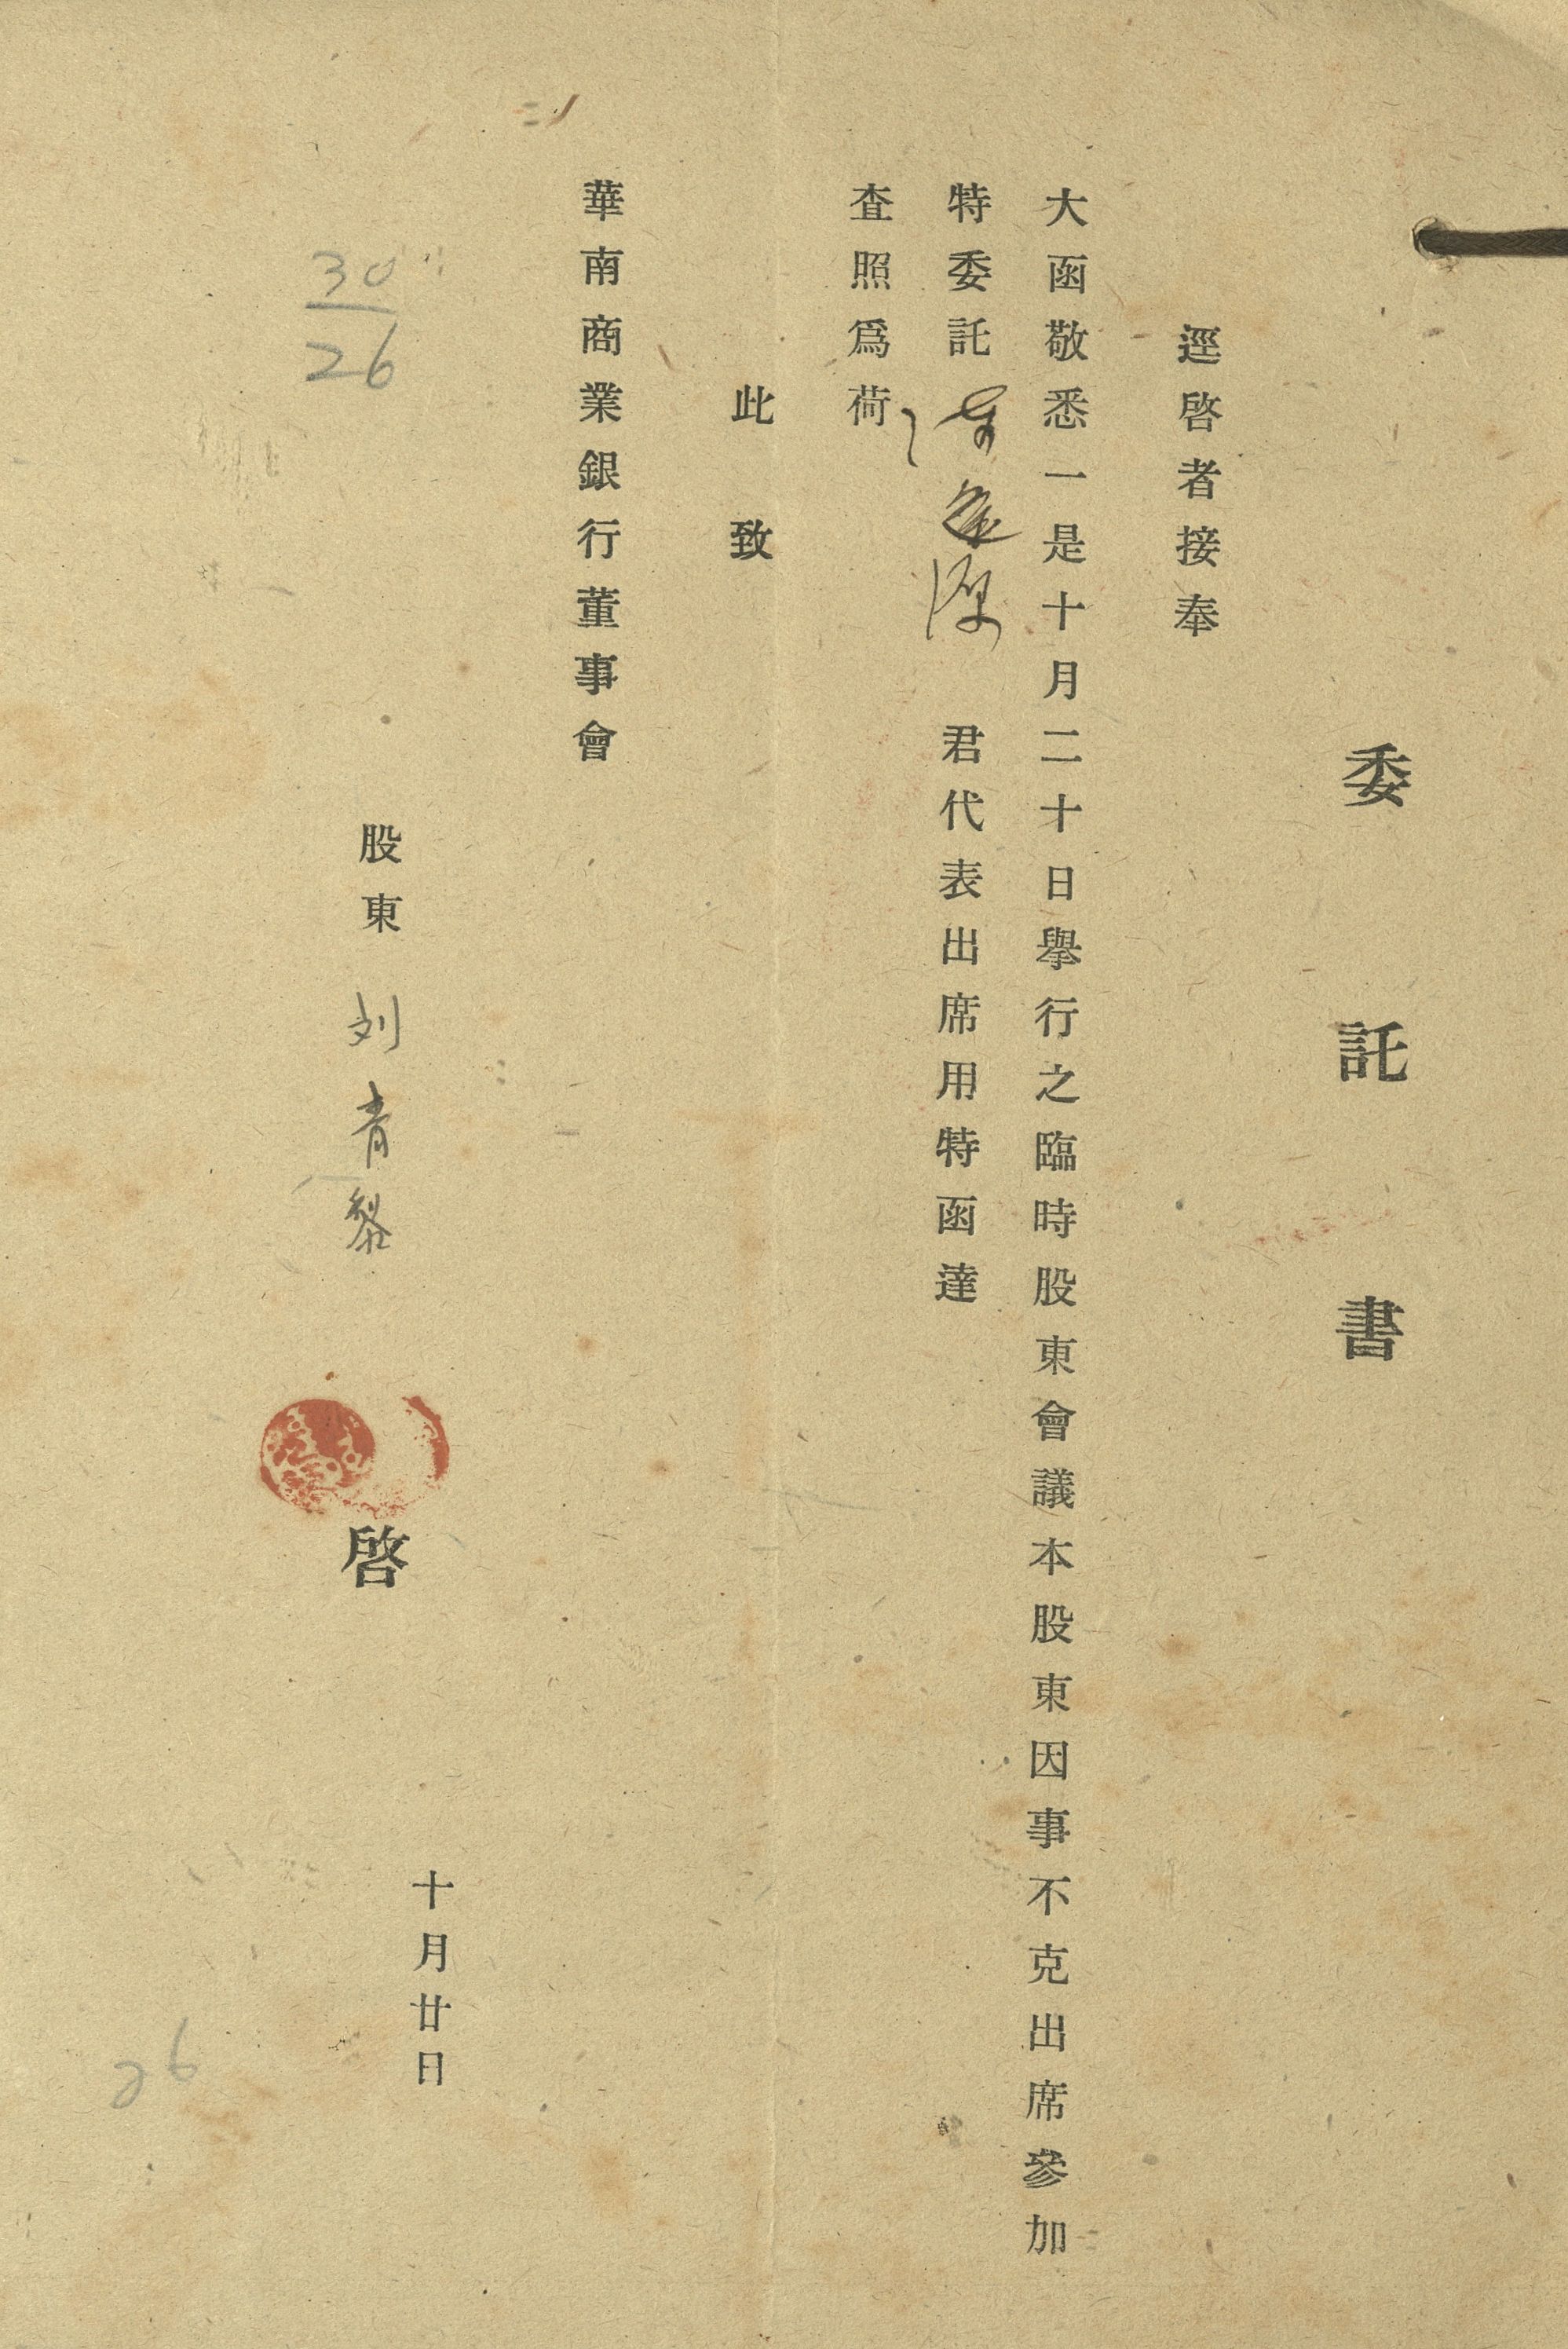 委託書
逕啓者接奉
大函敬悉一是十月二十日舉行之臨時股東會議本股東因事不克出席參加
特委託 君代表出席用特函達
査照爲荷
此致
華南商業銀行董事會
股東 刘青黎 啓
十月廿日
30
26
26